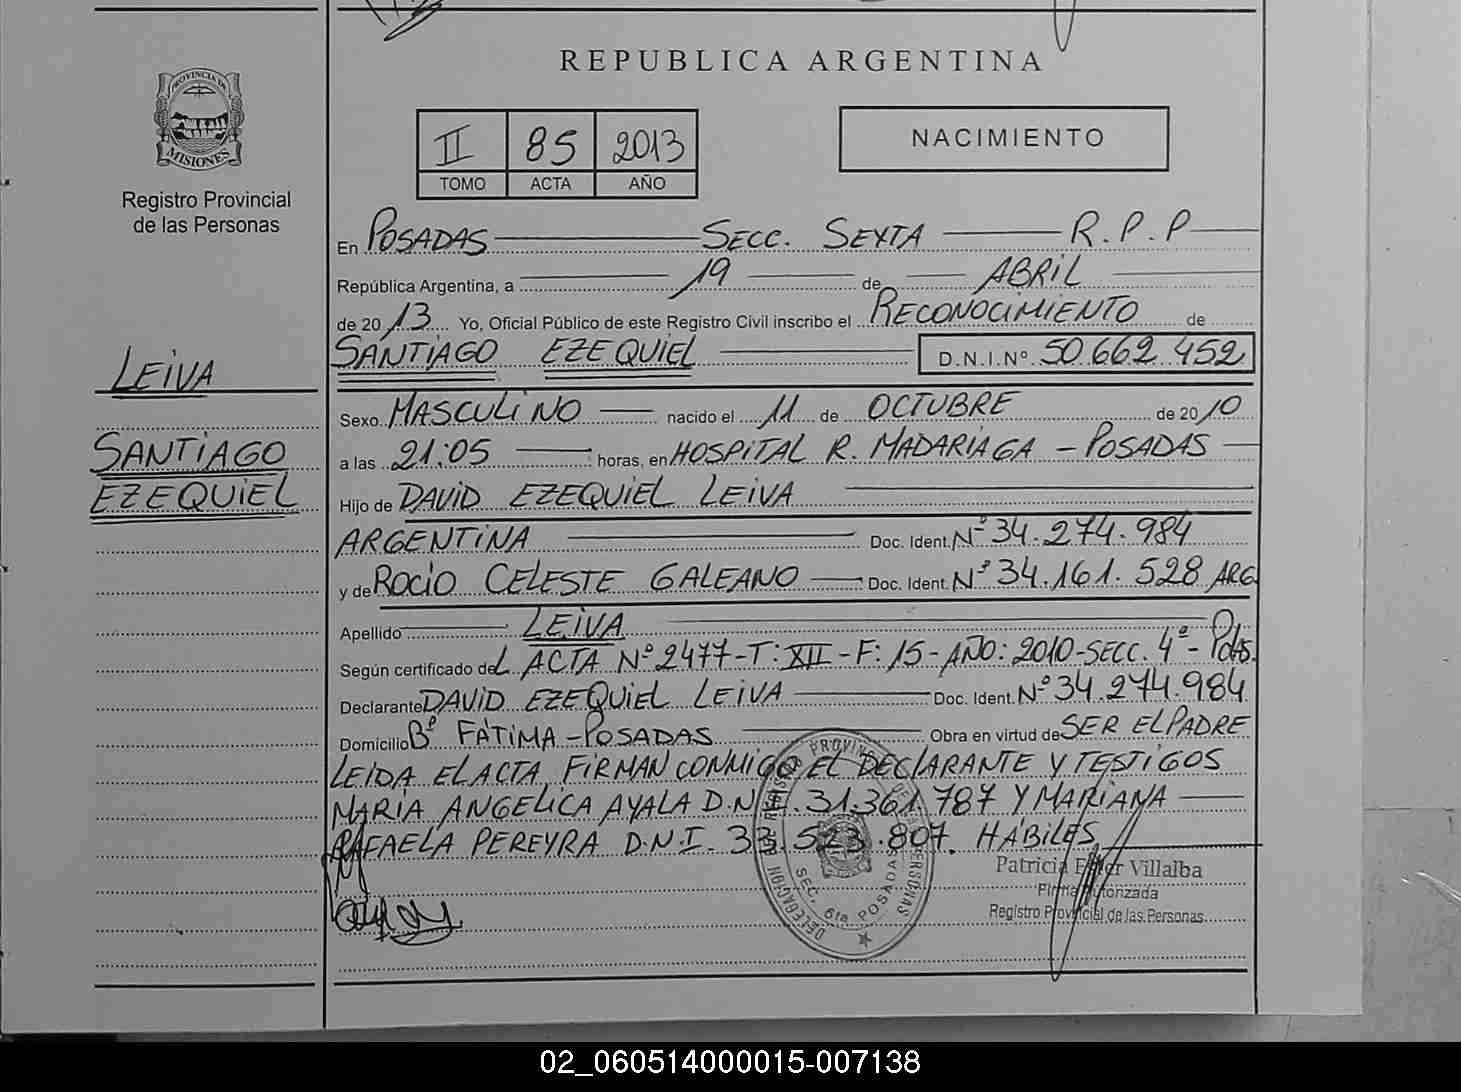 REPUBLICA ARGENTINA
PROVINCIA DE
MISIONES
Registro Provincial
de las Personas
II 85 2013
TOMO ACTA AÑO
NACIMIENTO
En POSADAS SECC. SEXTA R.P.P
República Argentina, a 19 de ABRIL
de 2013 Yo, Oficial Público de este Registro Civil inscribo el RECONOCIMIENTO de
SANTIAGO EZEQUIEL D.N.I.Nº 50.662.452
LEIVA
SANTIAGO
EZEQUIEL
Sexo MASCULINO nacido el 11 de OCTUBRE de 2010
a las 21:05 horas, en HOSPITAL R. MADARIAGA - POSADAS
Hijo de DAVID EZEQUIEL LEIVA
ARGENTINA Doc. Ident. Nº 34.274.984
y de ROCIO CELESTE GALEANO Doc. Ident. Nº 34.161.528 ARG.
Apellido LEIVA
Según certificado del ACTA Nº 2477-T: XII-F: 15-AÑO: 2010-SECC. 4º- Pdas.
Declarante DAVID EZEQUIEL LEIVA Doc. Ident. Nº 34.274.984
Domicilio Bº FÁTIMA-POSADAS Obra en virtud de SER EL PADRE
LEIDA EL ACTA FIRMAN CONMIGO EL DECLARANTE Y TESTIGOS
MARIA ANGELICA AYALA D.N.I. 31.361.787 Y MARIANA
RAFAELA PEREYRA D.N.I. 33.523.807. HÁBILES
Patricia Ester Villalba
Firma Autorizada
Registro Provincial de las Personas
DELEGACION DEL REGISTRO PROVINCIAL DE LAS PERSONAS
SEC. 6ta. POSADAS
02_060514000015-007138